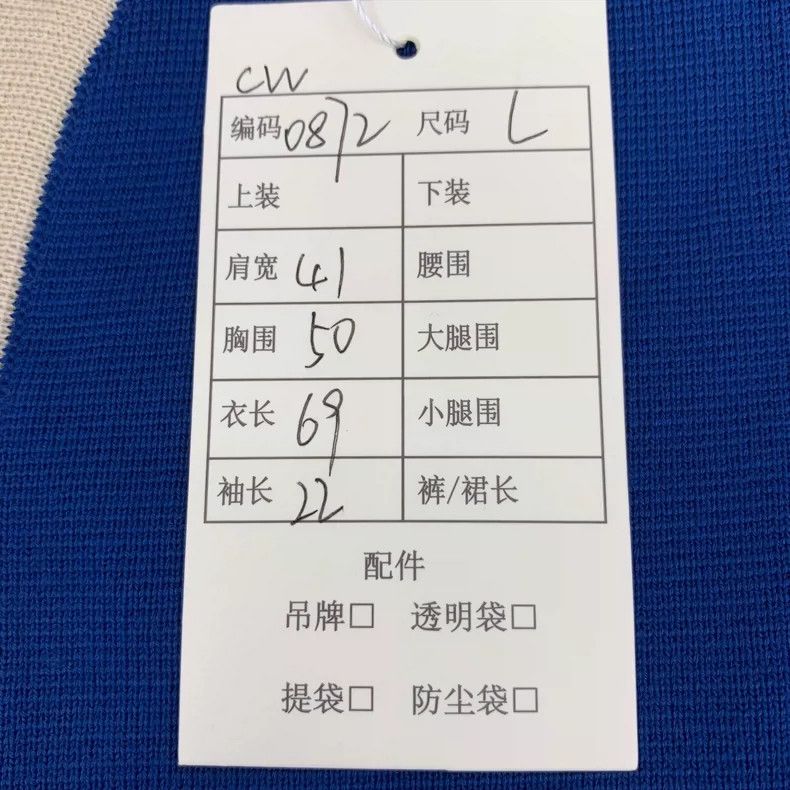 CW
编码 0872 尺码 L
上装 下装
肩宽 41 腰围
胸围 50 大腿围
衣长 69 小腿围
袖长 22 裤/裙长
配件
吊牌□ 透明袋□
提袋□ 防尘袋□